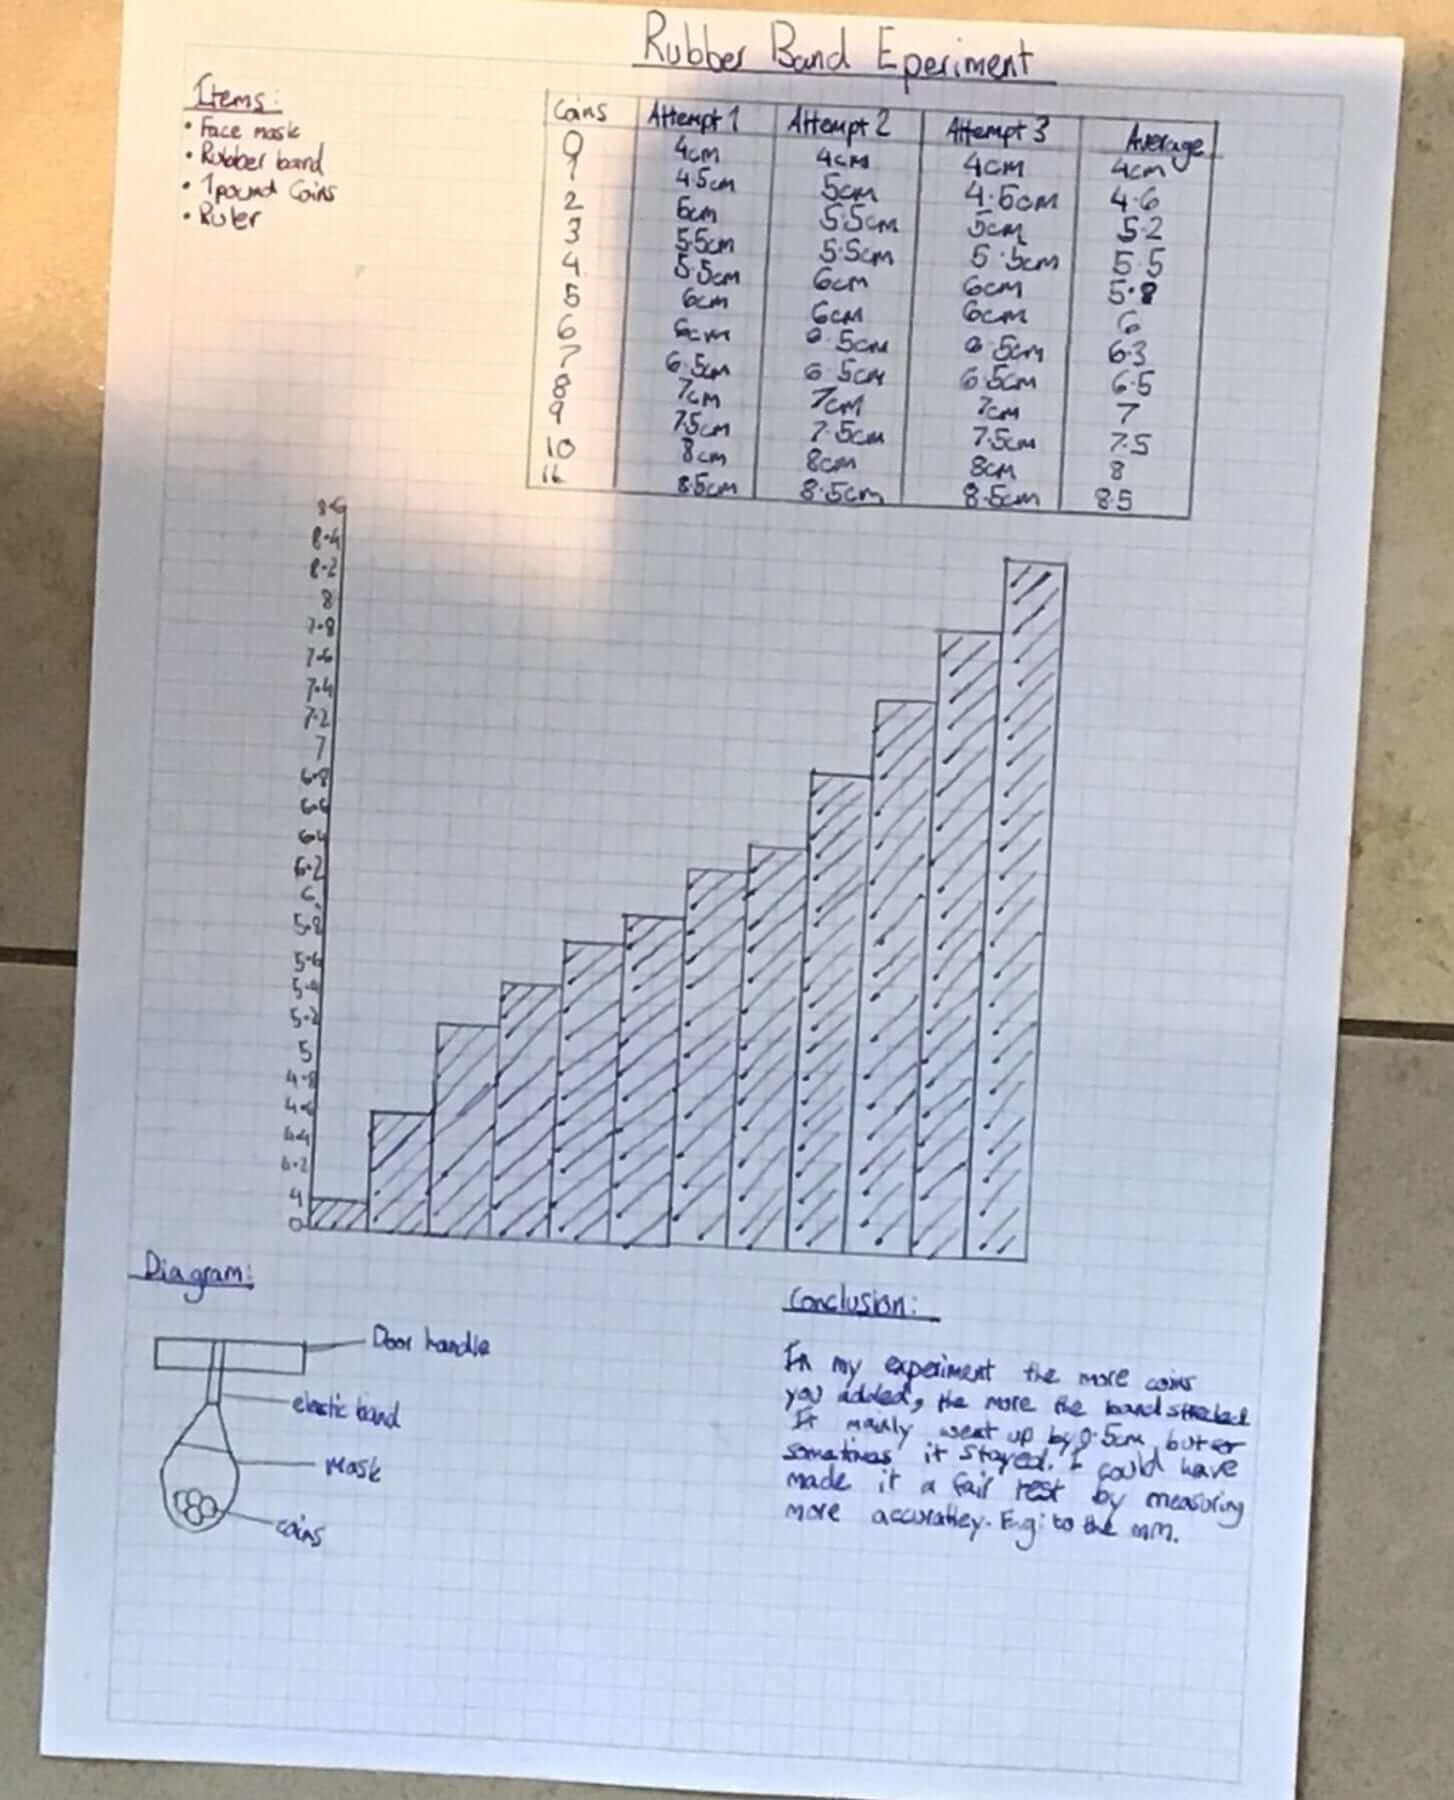 Rubber Band Eperiment
Items:
• Face mask
• Rubber band
• 1 pound Coins
• Ruler
Coins Attempt 1 Attempt 2 Attempt 3 Average
0 4cm 4cm 4cm 4cm
1 4.5cm 5cm 4.5cm 4.6
2 5cm 5.5cm 5cm 5.2
3 5.5cm 5.5cm 5.5cm 5.5
4 5.5cm 6cm 6cm 5.8
5 6cm 6cm 6cm 6
6 6cm 6.5cm 6.5cm 6.3
7 6.5cm 6.5cm 6.5cm 6.5
8 7cm 7cm 7cm 7
9 7.5cm 7.5cm 7.5cm 7.5
10 8cm 8cm 8cm 8
8.5cm 8.5cm 8.5cm 8.5
8.6
8.4
8.2
8
7.8
7.6
7.4
7.2
7
6.8
6.6
6.4
6.2
6
5.8
5.6
5.4
5.2
5
4.8
4.6
4.4
4.2
4
0
Diagram:
Door handle
elastic band
Mask
coins
Conclusion:
In my experiment the more coins
you added, the more the band
It mainly went up by 0.5cm, but
sometimes it stayed. I could have
made it a fair test by measuring
more accuratley. E.g: to the mm.